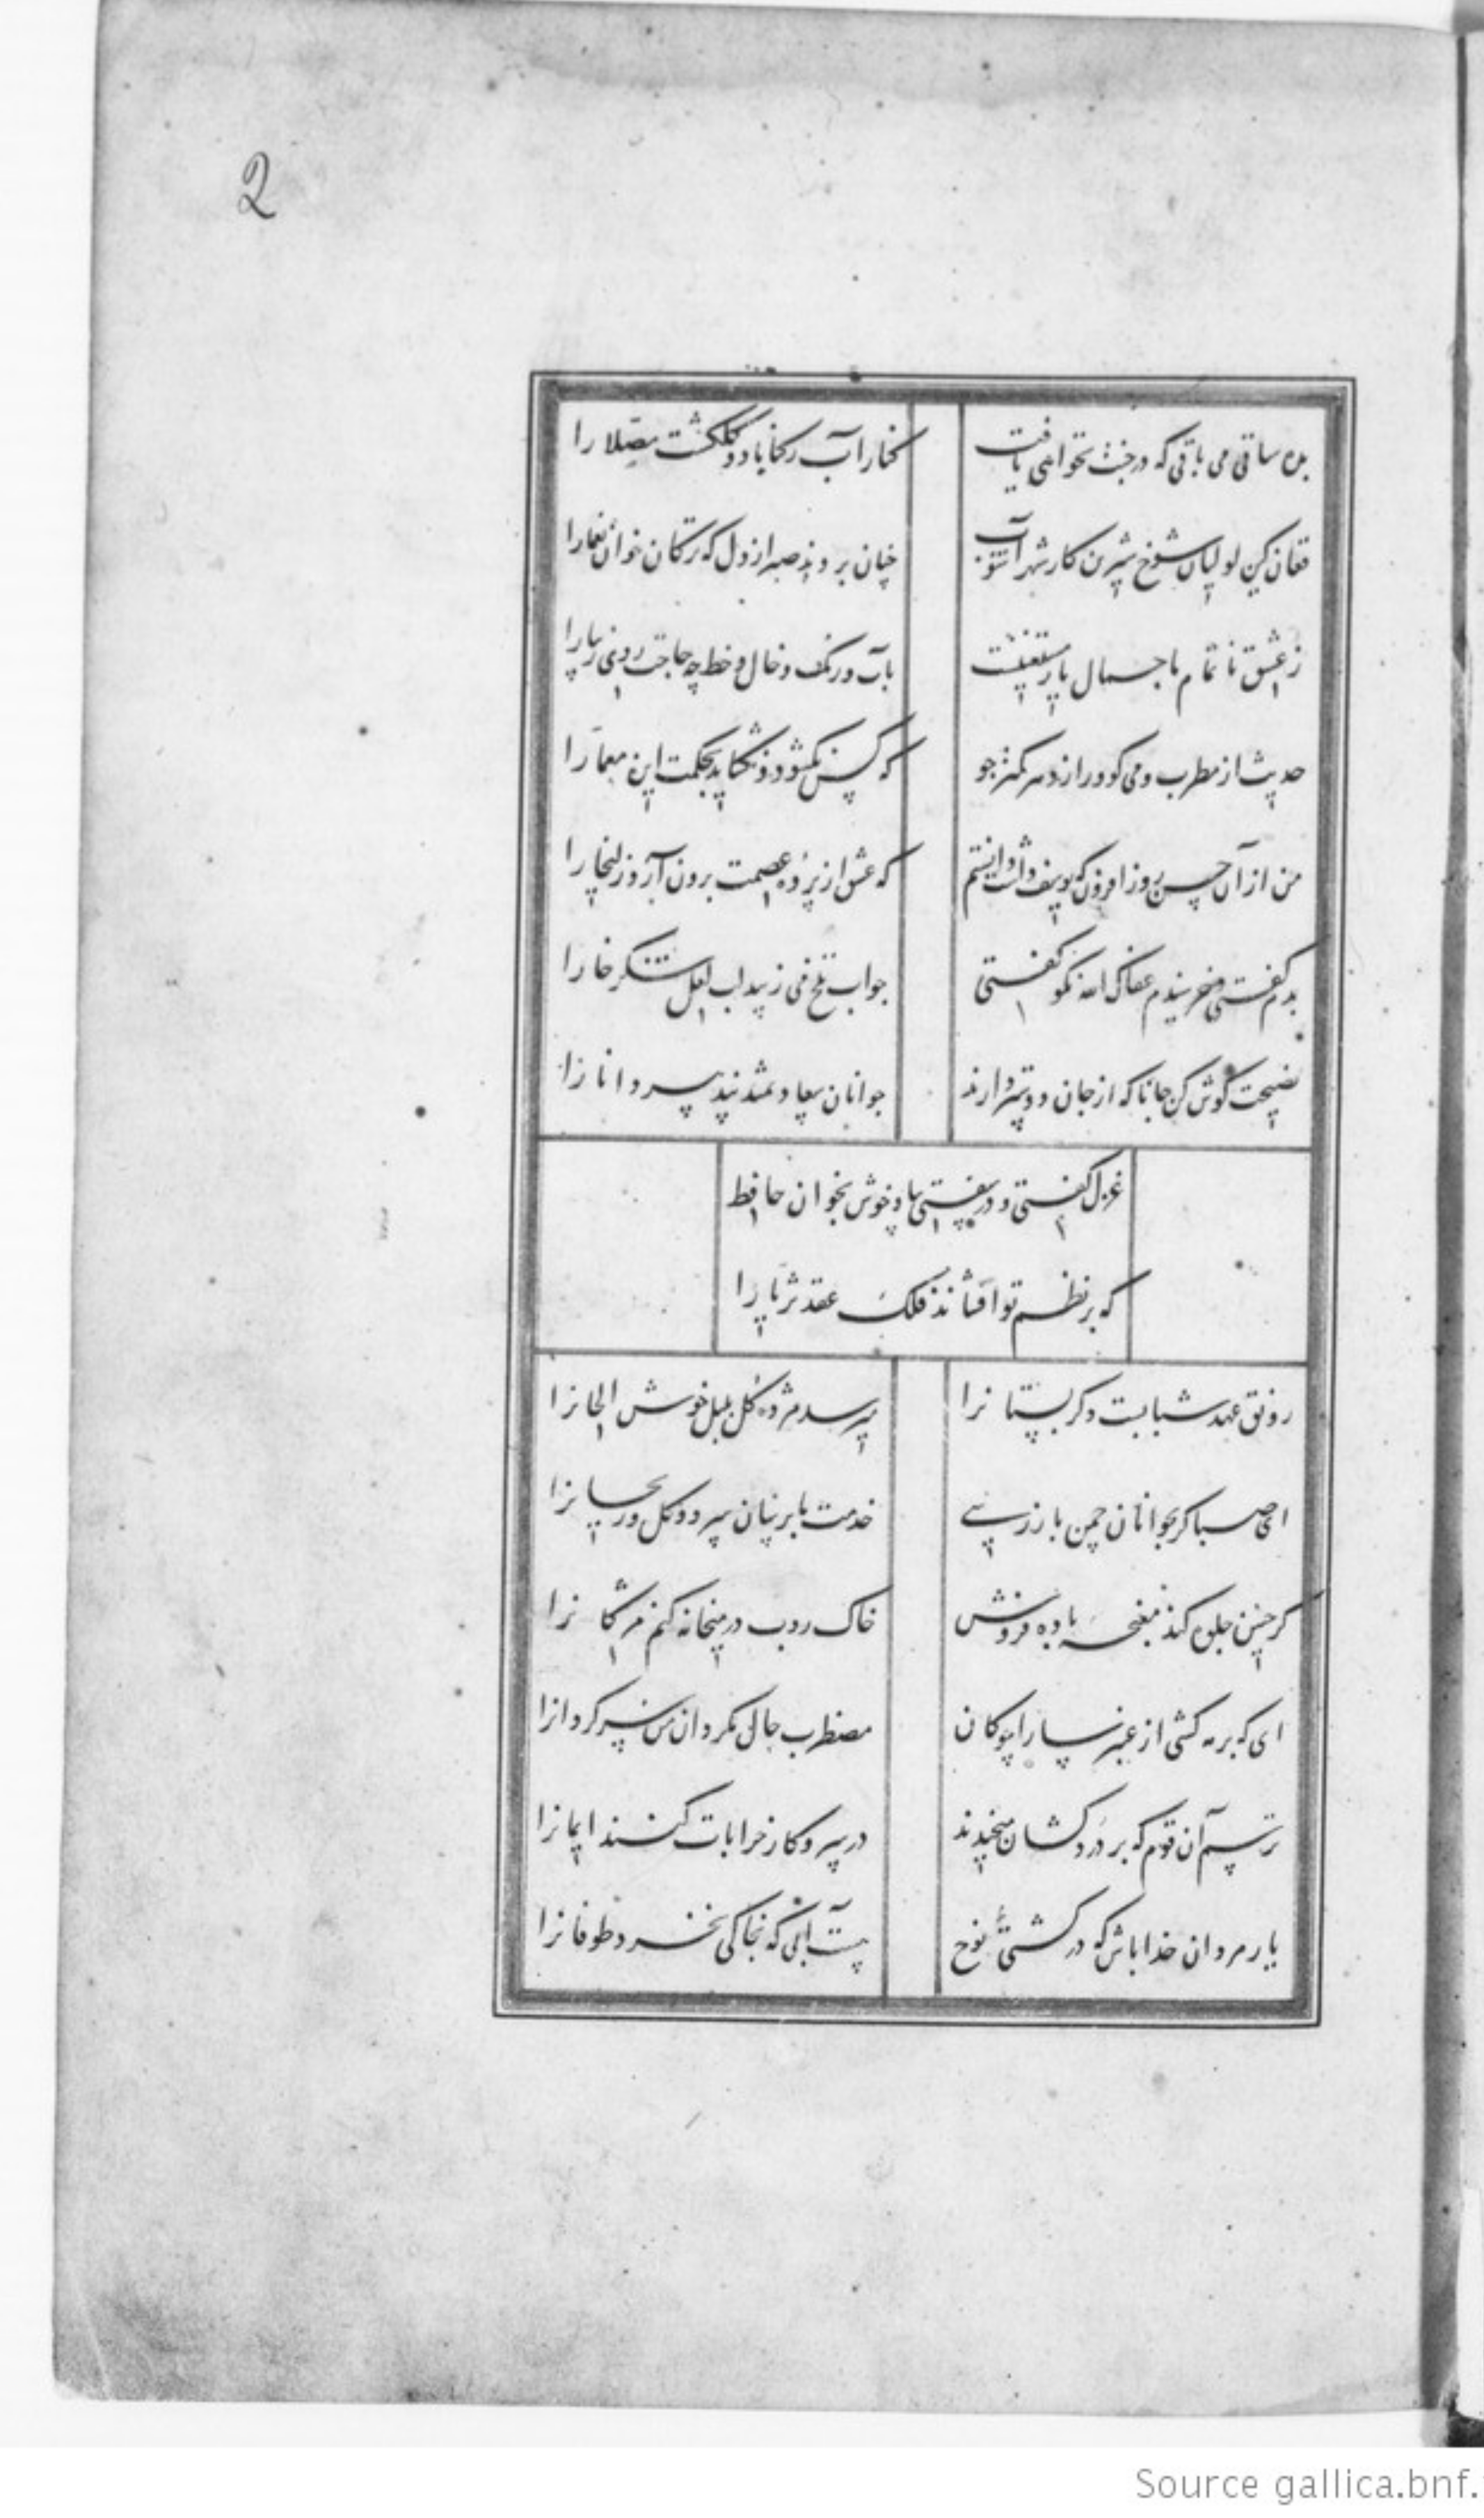 2
بده ساقی می باقی که در جنت نخواهی یافت
کنار آب رکناباد و گلگشت مصلا را
فغان کین لولیان شوخ شیرین کار شهر آشوب
چنان بردند صبر از دل که ترکان خوان یغما را
ز عشق ناتمام ما جمال یار مستغنیست
بآب و رنگ و خال و خط چه حاجت روی زیبا را
حدیث از مطرب و می گو و راز دهر کمتر جو
که کس نگشود و نگشاید بحکمت این معما را
من از آن حسن روز افزون که یوسف داشت دانستم
که عشق از پرده عصمت برون آرد زلیخا را
بدم گفتی و خرسندم عفاک الله نکو گفتی
جواب تلخ می زیبد لب لعل شکرخا را
نصیحت گوش کن جانا که از جان دوستتر دارند
جوانان سعادتمند پند پیر دانا را
غزل گفتی و در سفتی بیا و خوش بخوان حافظ
که بر نظم تو افشاند فلک عقد ثریا را
رونق عهد شبابست دگر بستانرا
میرسد مژده گل بلبل خوش الحانرا
ای صبا گر بجوانان چمن باز رسی
خدمت ما برسان سرو و گل و ریحانرا
گر چنین جلوه کند مغبچه باده فروش
خاک روب در میخانه کنم مژگانرا
ای که بر مه کشی از عنبر سارا چوگان
مضطرب حال مگردان من سرگردانرا
ترسم آن قوم که بر دردکشان میخندند
در سر کار خرابات کنند ایمانرا
یار مردان خدا باش که در کشتی نوح
هست آبی که بخاکی نخرد طوفانرا
Source gallica.bnf.